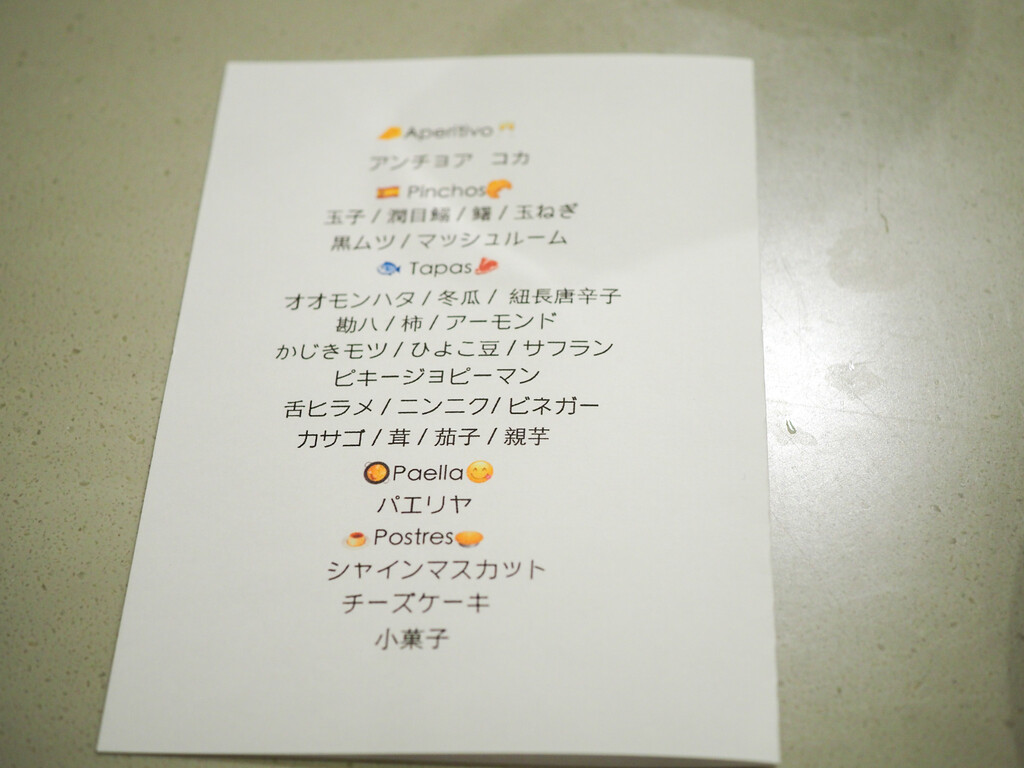 Aperitivo
アンチョア コカ
Pinchos
玉子 / 潤目鰯 / 鱚 / 玉ねぎ
黒ムツ / マッシュルーム
Tapas
オオモンハタ / 冬瓜 / 紐長唐辛子
勘八 / 柿 / アーモンド
かじきモツ / ひよこ豆 / サフラン
ピキージョピーマン
舌ヒラメ / ニンニク / ビネガー
カサゴ / 茸 / 茄子 / 親芋
Paella
パエリヤ
Postres
シャインマスカット
チーズケーキ
小菓子